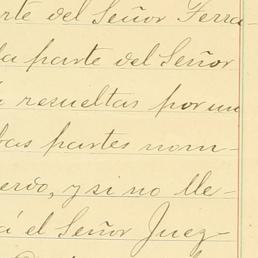 rte del Señor Ferra-
la parte del Señor
resueltas por un
bas partes nom-
erdo, y si no lle-
á el Señor Juez